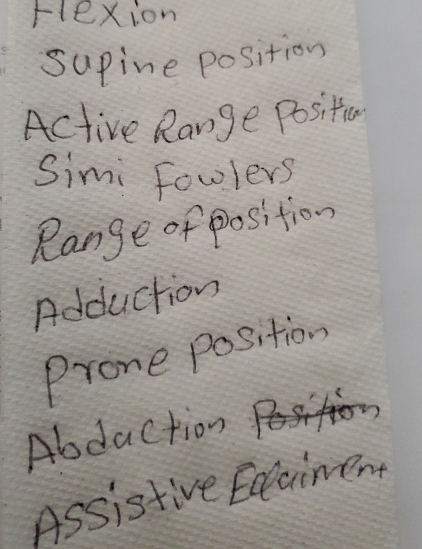 Flexion
Supine position
Active Range Position
Simi Fowlers
Range of position
Adduction
Prone position
Abduction Position
Assistive Equiment